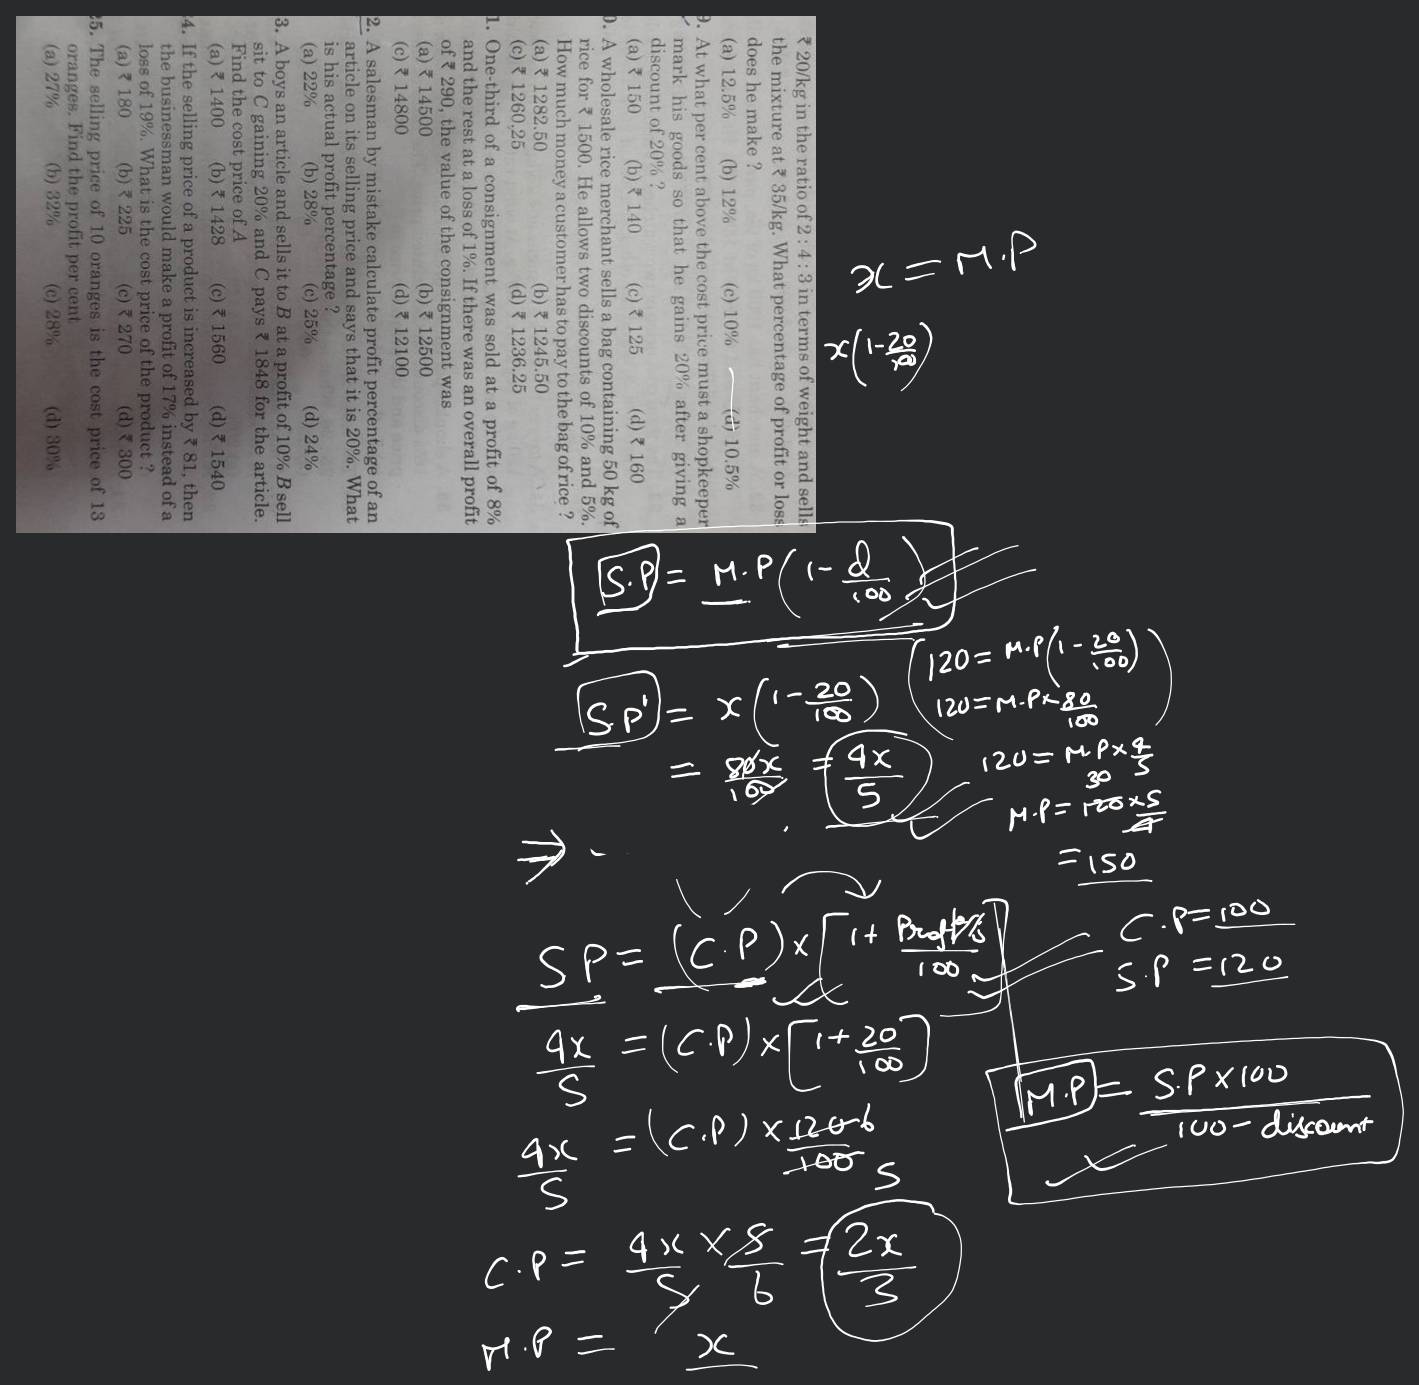 ₹ 20/kg in the ratio of 2 : 4 : 3 in terms of weight and sells
the mixture at ₹ 35/kg. What percentage of profit or loss
does he make ?
(a) 12.5% (b) 12% (c) 10% (d) 10.5%
9. At what per cent above the cost price must a shopkeeper
mark his goods so that he gains 20% after giving a
discount of 20% ?
(a) ₹ 150 (b) ₹ 140 (c) ₹ 125 (d) ₹ 160
0. A wholesale rice merchant sells a bag containing 50 kg of
rice for ₹ 1500. He allows two discounts of 10% and 5%.
How much money a customer has to pay to the bag of rice ?
(a) ₹ 1282.50 (b) ₹ 1245.50
(c) ₹ 1260.25 (d) ₹ 1236.25
1. One-third of a consignment was sold at a profit of 8%
and the rest at a loss of 1%. If there was an overall profit
of ₹ 290, the value of the consignment was
(a) ₹ 14500 (b) ₹ 12500
(c) ₹ 14800 (d) ₹ 12100
2. A salesman by mistake calculate profit percentage of an
article on its selling price and says that it is 20%. What
is his actual profit percentage ?
(a) 22% (b) 28% (c) 25% (d) 24%
3. A boys an article and sells it to B at a profit of 10% B sell
sit to C gaining 20% and C pays ₹ 1848 for the article.
Find the cost price of A
(a) ₹ 1400 (b) ₹ 1428 (c) ₹ 1560 (d) ₹ 1540
4. If the selling price of a product is increased by ₹ 81, then
the businessman would make a profit of 17% instead of a
loss of 19%. What is the cost price of the product ?
(a) ₹ 180 (b) ₹ 225 (c) ₹ 270 (d) ₹ 300
5. The selling price of 10 oranges is the cost price of 13
oranges. Find the profit per cent
(a) 27% (b) 32% (c) 28% (d) 30%
x = M.P
x(1-20/100)
S.P = M.P(1-d/100)
S.P' = x(1-20/100)
= 80x/100 = 4x/5
120 = M.P(1-20/100)
120 = M.P×80/100
120 = M.P×4/5
30
M.P = 120×5/4
= 150
⇒
SP = (C.P)×[1+ Profit%/100]
C.P = 100
S.P = 120
4x/5 = (C.P)×[1+20/100]
4x/5 = (C.P)×120/100 6
5
C.P = 4x/5 × 5/6 = 2x/3
M.P = x
M.P = S.P×100/100-discount